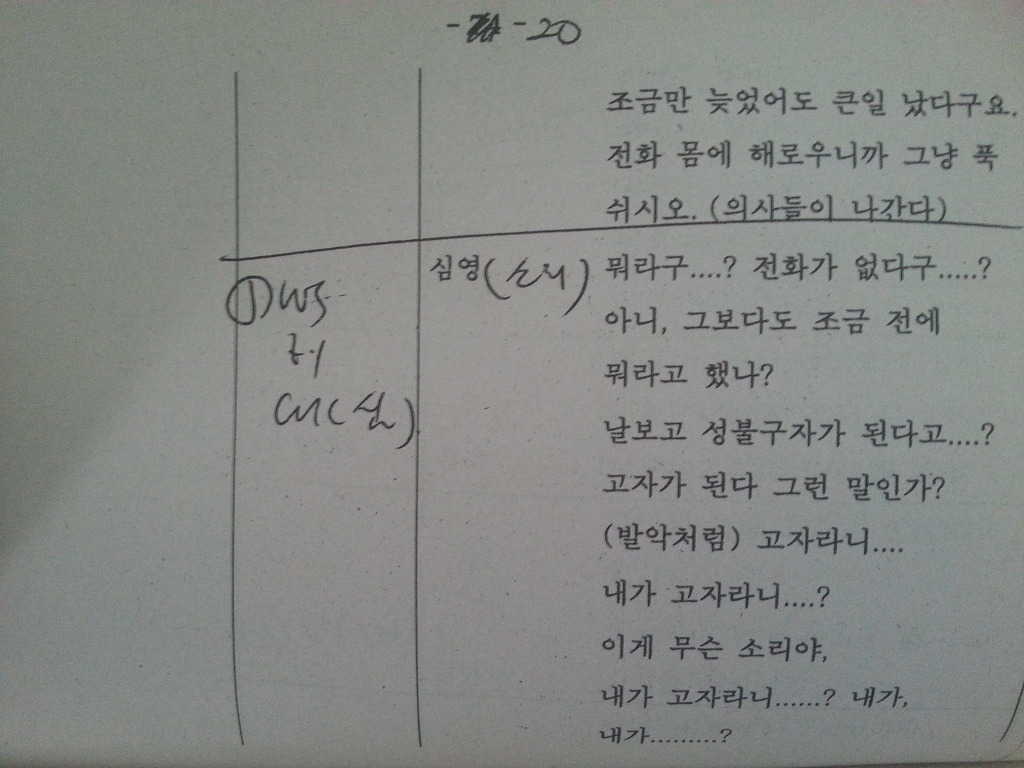 -20
조금만 늦었어도 큰일 났다구요.
전화 몸에 해로우니까 그냥 푹
쉬시오. (의사들이 나간다)
심영 (소리) 뭐라구....? 전화가 없다구.....?
① WS
아니, 그보다도 조금 전에
뭐라고 했나?
날보고 성불구자가 된다고....?
고자가 된다 그런 말인가?
(발악처럼) 고자라니....
내가 고자라니....?
이게 무슨 소리야,
내가 고자라니......? 내가,
내가.........?